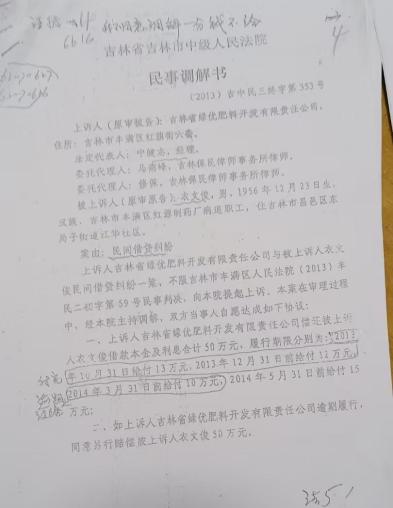 4
吉林省吉林市中级人民法院
民事调解书
(2013)吉中民三终字第353号
上诉人(原审被告):吉林省绿优肥料开发有限责任公司。
住所:吉林市丰满区红旗街六委。
法定代表人:宁健志,经理。
委托代理人:吉林保民律师事务所律师。
委托代理人:修保,吉林保民律师事务所律师。
被上诉人(原审原告):衣文俊,男,1956年12月23日生,
汉族,吉林市丰满区红源制药厂病退职工,住吉林市昌邑区东
局子街道江华社区。
案由:民间借贷纠纷
上诉人吉林省绿优肥料开发有限责任公司与被上诉人衣文
俊民间借贷纠纷一案,不服吉林市丰满区人民法院(2013)丰
民二初字第59号民事判决,向本院提起上诉。本案在审理过程
中,经本院主持调解,双方当事人自愿达成如下协议:
一、上诉人吉林省绿优肥料开发有限责任公司偿还被上诉
人衣文俊借款本金及利息合计50万元,履行期限分别为:2013
年10月31日给付13万元,2013年12月31日前给付12万元,
2014年3月31日前给付10万元,2014年5月31日前给付15
万元;
二、如上诉人吉林省绿优肥料开发有限责任公司逾期履行,
同意另行赔偿被上诉人衣文俊50万元。